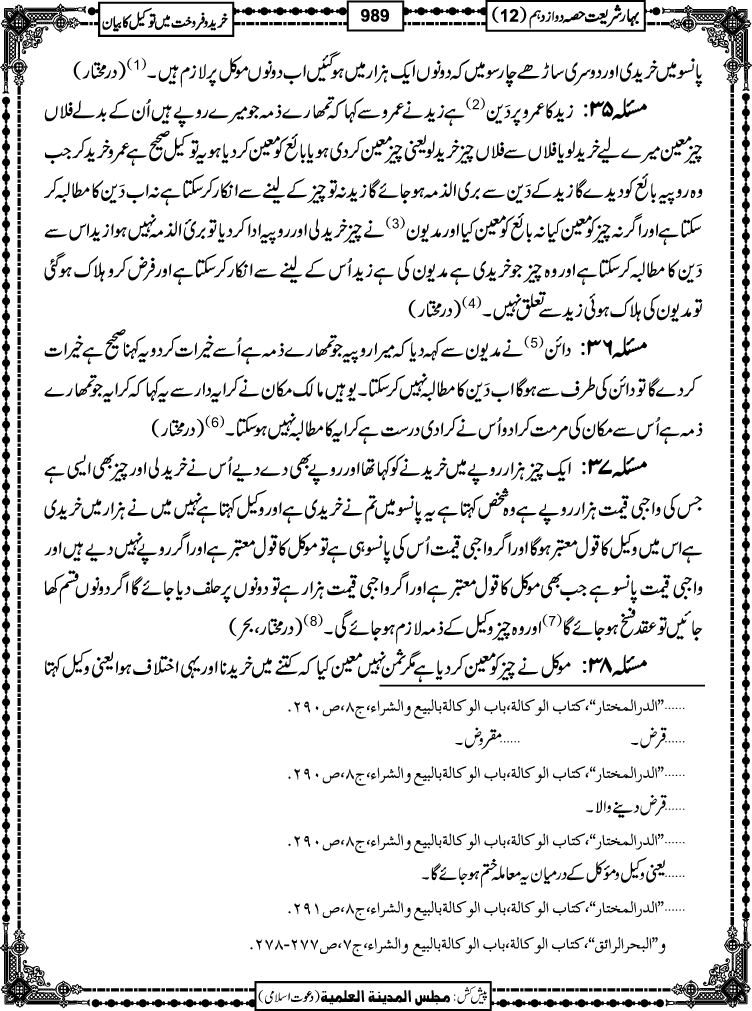 بہارِ شریعت حصہ دوازدہم (12)
989
خرید و فروخت میں توکیل کا بیان
پانسو میں خریدی اور دوسری ساڑھے چار سو میں کہ دونوں ایک ہزار میں ہوگئیں اب دونوں موکل پر لازم ہیں۔(1) (درمختار)
مسئلہ ۳۵: زید کا عمرو پر دَین(2) ہے زید نے عمرو سے کہا کہ تمھارے ذمہ جو میرے روپے ہیں اُن کے بدلے فلاں
چیز معین میرے لیے خرید لو یا فلاں سے فلاں چیز خرید لو یعنی چیز معین کردی ہو یا بائع کو معین کردیا ہو یہ توکیل صحیح ہے عمرو خرید کر جب
وہ روپیہ بائع کو دیدے گا زید کے دَین سے بری الذمہ ہوجائے گا زید نہ تو چیز کے لینے سے انکار کرسکتا ہے نہ اب دَین کا مطالبہ کر
سکتا ہے اور اگر نہ چیز کو معین کیا نہ بائع کو معین کیا اور مدیون(3) نے چیز خرید لی اور روپیہ ادا کردیا تو بریٔ الذمہ نہیں ہوا زید اس سے
دَین کا مطالبہ کرسکتا ہے اور وہ چیز جو خریدی ہے مدیون کی ہے زید اُس کے لینے سے انکار کرسکتا ہے اور فرض کرو ہلاک ہوگئی
تو مدیون کی ہلاک ہوئی زید سے تعلق نہیں۔(4) (درمختار)
مسئلہ ۳۶: دائن(5) نے مدیون سے کہہ دیا کہ میرا روپیہ جو تمھارے ذمہ ہے اُسے خیرات کردو یہ کہنا صحیح ہے خیرات
کردے گا تو دائن کی طرف سے ہوگا اب دَین کا مطالبہ نہیں کرسکتا۔ یوہیں مالک مکان نے کرایہ دار سے یہ کہا کہ کرایہ جو تمھارے
ذمہ ہے اُس سے مکان کی مرمت کرادو اُس نے کرادی درست ہے کرایہ کا مطالبہ نہیں ہوسکتا۔(6) (درمختار)
مسئلہ ۳۷: ایک چیز ہزار روپے میں خریدنے کو کہا تھا اور روپے بھی دے دیے اُس نے خرید لی اور چیز بھی ایسی ہے
جس کی واجبی قیمت ہزار روپے ہے وہ شخص کہتا ہے یہ پانسو میں تم نے خریدی ہے اور وکیل کہتا ہے نہیں میں نے ہزار میں خریدی
ہے اس میں وکیل کا قول معتبر ہوگا اور اگر واجبی قیمت اُس کی پانسو ہی ہے تو موکل کا قول معتبر ہے اور اگر روپے نہیں دیے ہیں اور
واجبی قیمت پانسو ہے جب بھی موکل کا قول معتبر ہے اور اگر واجبی قیمت ہزار ہے تو دونوں پر حلف دیا جائے گا اگر دونوں قسم کھا
جائیں تو عقد فسخ ہوجائے گا(7) اور وہ چیز وکیل کے ذمہ لازم ہوجائے گی۔(8) (درمختار، بحر)
مسئلہ ۳۸: موکل نے چیز کو معین کردیا ہے مگر ثمن نہیں معین کیا کہ کتنے میں خریدنا اور یہی اختلاف ہوا یعنی وکیل کہتا
......"الدرالمختار"،كتاب الوكالة،باب الوكالةبالبيع والشراء،ج٨،ص٢٩٠.
......قرض۔ ......مقروض۔
......"الدرالمختار"،كتاب الوكالة،باب الوكالةبالبيع والشراء،ج٨،ص٢٩٠.
......قرض دینے والا۔
......"الدرالمختار"،كتاب الوكالة،باب الوكالةبالبيع والشراء،ج٨،ص٢٩٠.
......یعنی وکیل و مؤکل کے درمیان یہ معاملہ ختم ہوجائے گا۔
......"الدرالمختار"،كتاب الوكالة،باب الوكالةبالبيع والشراء،ج٨،ص٢٩١.
و"البحرالرائق"،كتاب الوكالة،باب الوكالةبالبيع والشراء،ج٧،ص٢٧٧-٢٧٨.
پیش کش: مجلس المدينة العلمية (دعوت اسلامی)